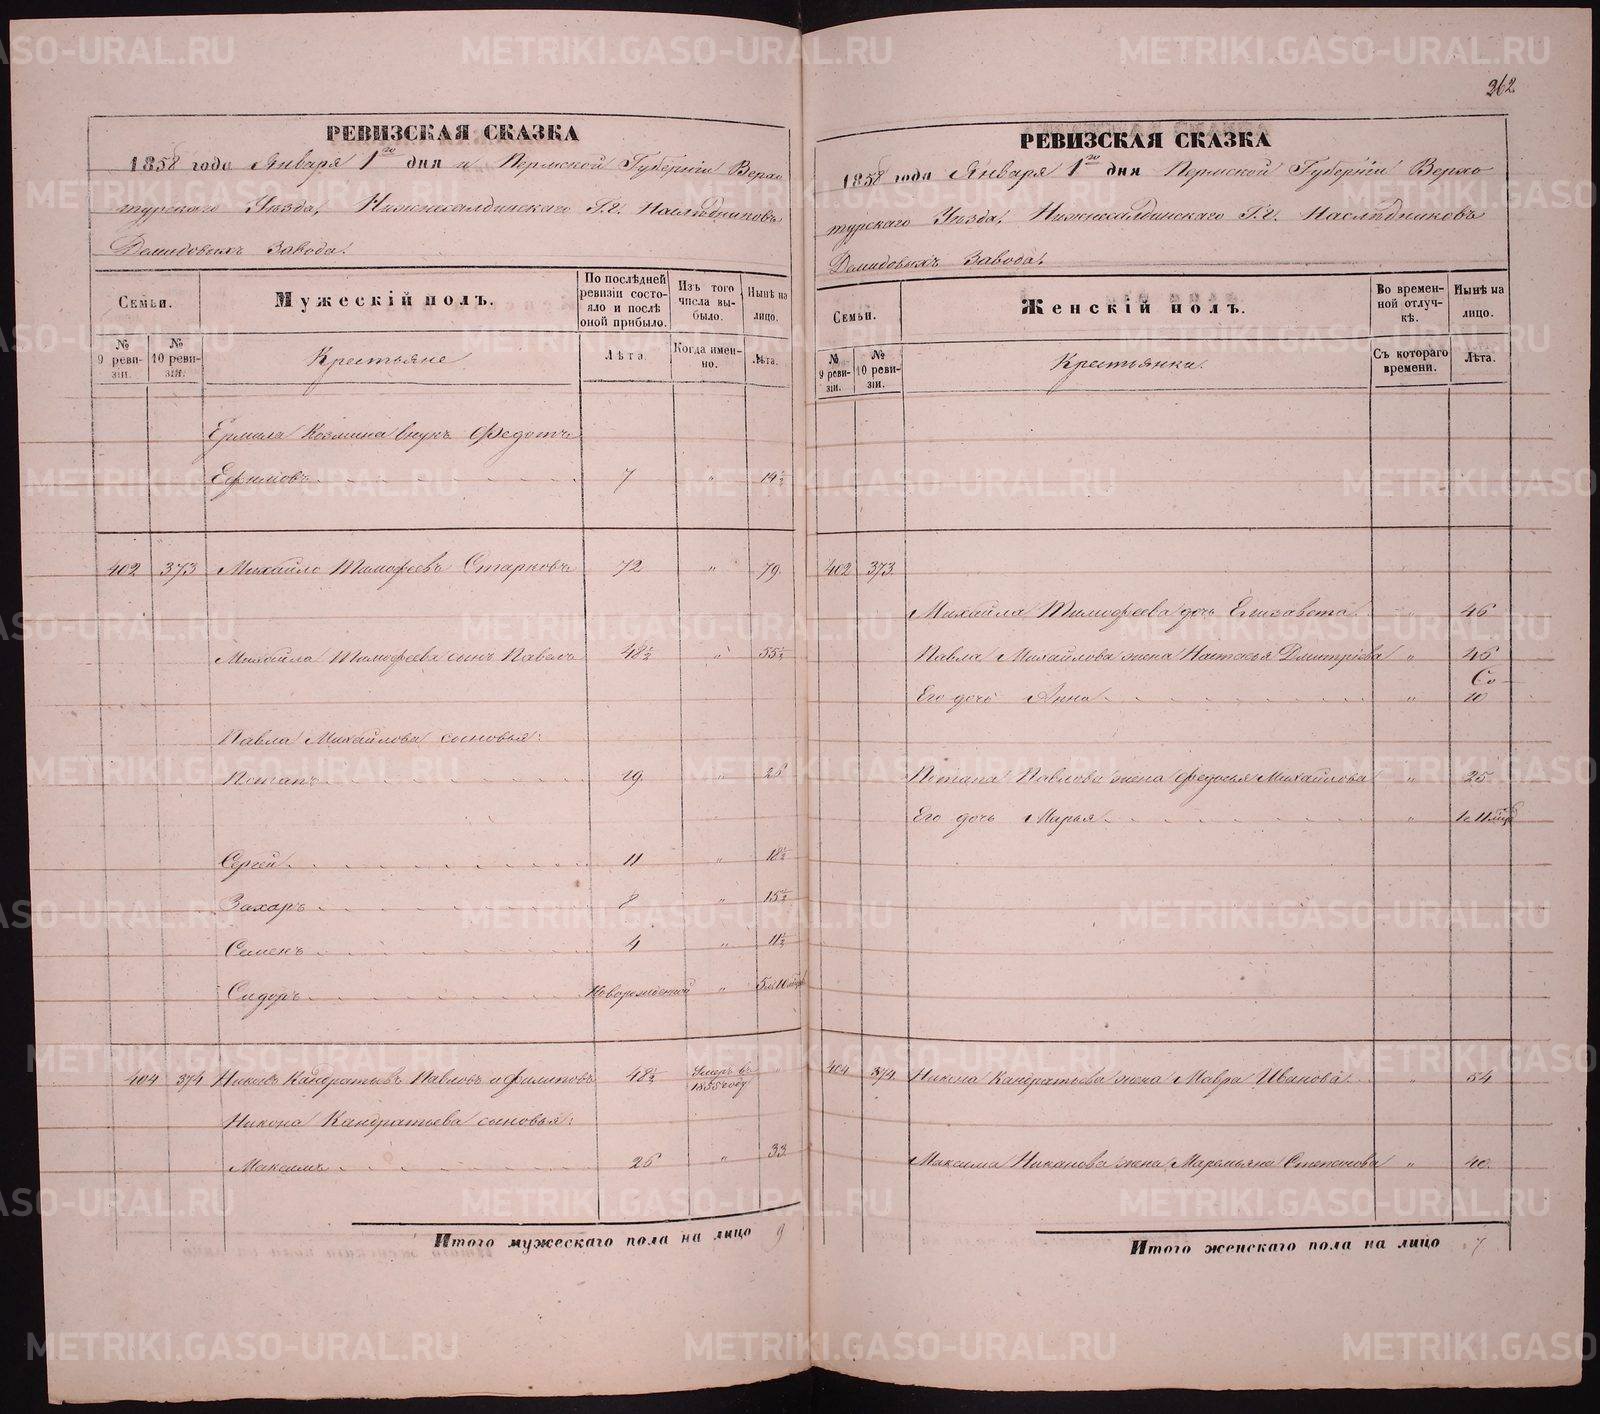 262
РЕВИЗСКАЯ СКАЗКА
1858 года Января 1го дня Пермской Губерніи Верхо
турскаго Уѣзда, Нижнесалдинскаго Г.г. Наслѣдниковъ
Демидовыхъ Завода.
Семьи.
Мужескій полъ.
По послѣдней ревизіи состояло и послѣ оной прибыло.
Изъ того числа выбыло.
Нынѣ на лицо.
№ 9 ревизіи.
№ 10 ревизіи.
Крестьяне
Лѣта.
Когда именно.
Лѣта.
Ермила Козмина внукъ Федотъ
Ефимовъ 7 " 14½
402 373 Михайло Тимофеевъ Старковъ 72 " 79.
Михайла Тимофеева сынъ Павелъ 48½ " 55½
Павла Михайлова сыновья:
Потапъ 19 " 26
Сергей 11 " 18½
Захаръ 8 " 15½
Семенъ 4 " 11½
Сидоръ Новорожденной " 5л.10мѣс
404 374 Никонъ Кандратьевъ Павловъ и Филиповъ 48½ Умеръ въ 1855 году "
Никона Кандратьева сыновья:
Максимъ 26 " 33
Итого мужескаго пола на лицо 9
РЕВИЗСКАЯ СКАЗКА
1858 года Января 1го дня Пермской Губерніи Верхо
турскаго Уѣзда, Нижнесалдинскаго Г.г. Наслѣдниковъ
Демидовыхъ Завода.
Семьи.
Женскій полъ.
Во временной отлучкѣ.
Нынѣ на лицо.
№ 9 ревизіи.
№ 10 ревизіи.
Крестьянки.
Съ котораго времени.
Лѣта.
402 373.
Михайла Тимофеева дочь Елизавета " 46
Павла Михайлова жена Настасья Дмитріева " 46
Его дочь Анна " 10
Потапа Павлова жена Федосья Михайлова " 25
Его дочь Марья " 1г.11мѣс
404 374 Никона Кандратьева жена Мавра Иванова 54
Максима Никанова жена Маремьяна Степанова " 40.
Итого женскаго пола на лицо 7
METRIKI.GASO-URAL.RU